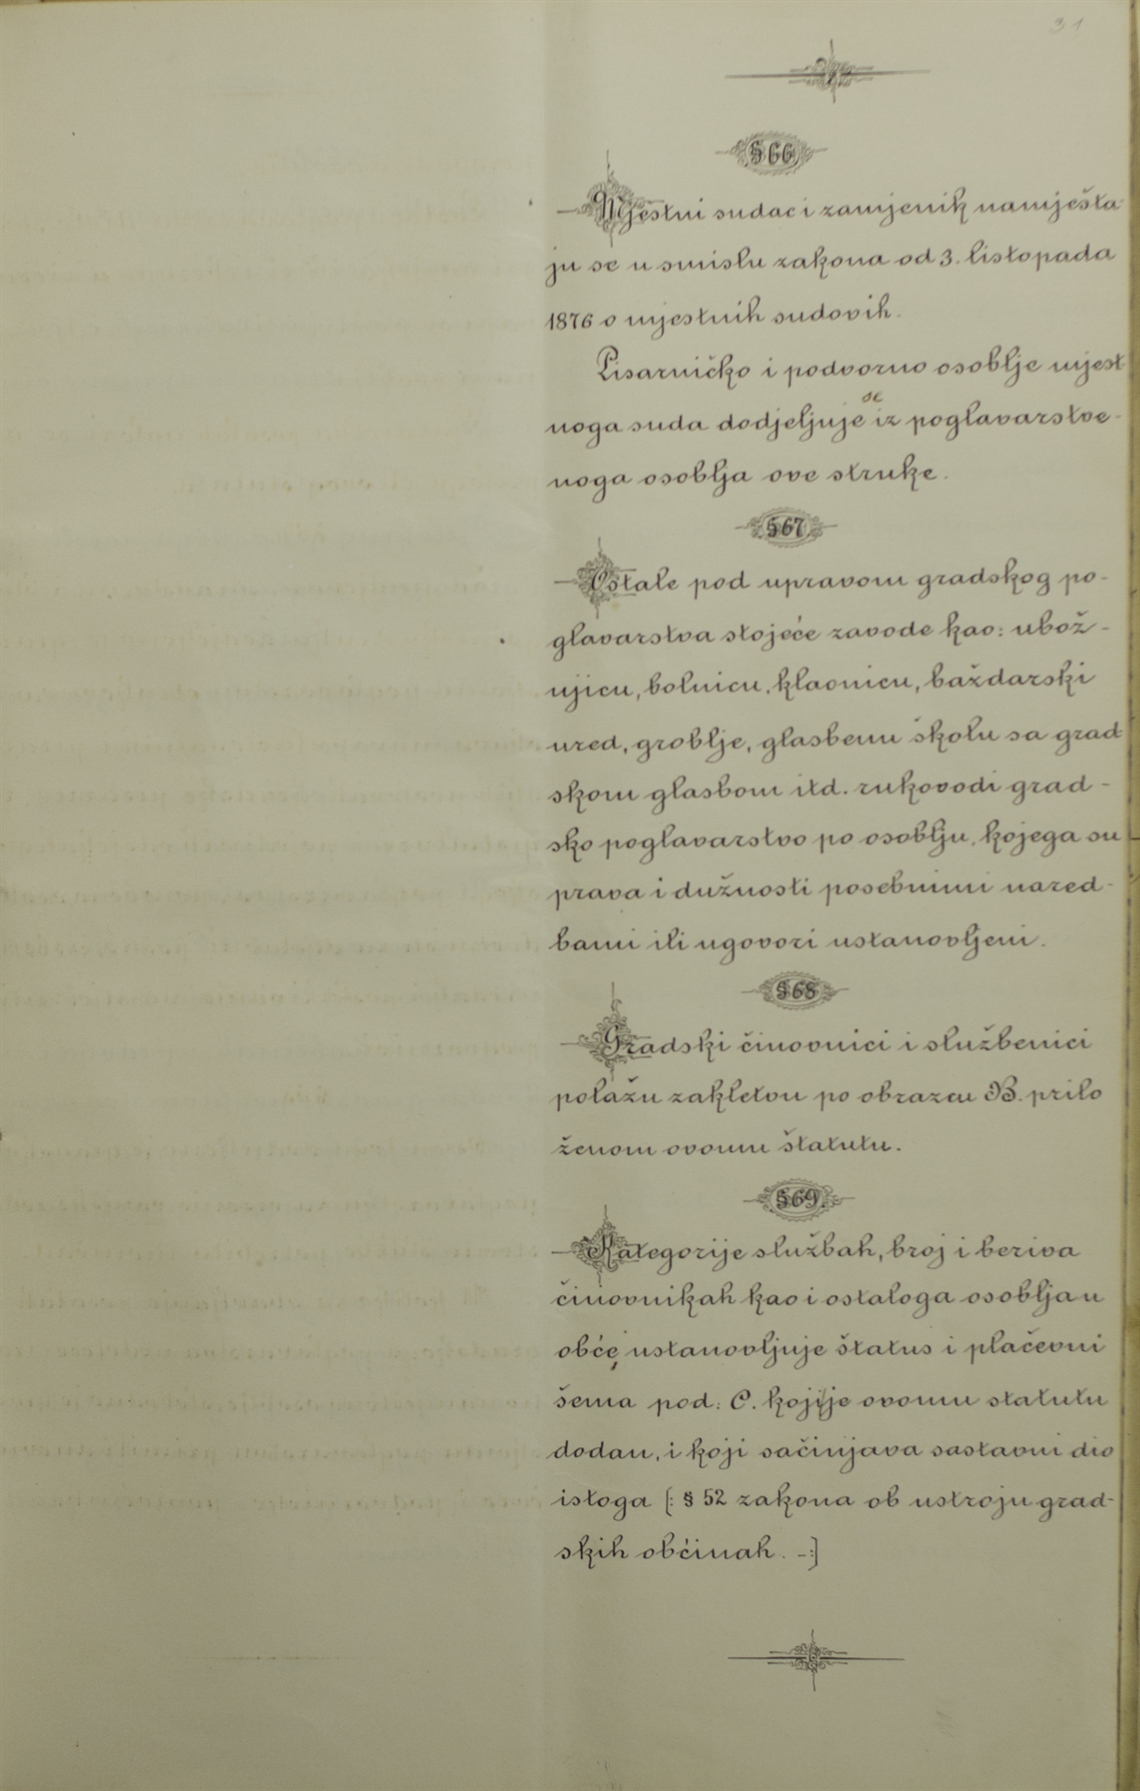 31
§ 66
Mjestni sudac i zamjenik namješta
ju se u smislu zakona od 3. listopada
1876 o mjestnih sudovih.
Pisarničko i podvorno osoblje mjest
se
noga suda dodjeljuje iz poglavarstve-
noga osoblja ove struke.
§ 67
Ostale pod upravom gradskog po-
glavarstva stojeće zavode kao: ubož-
njicu, bolnicu, klaonicu, baždarski
ured, groblje, glasbenu školu sa grad
skom glasbom itd. rukovodi grad-
sko poglavarstvo po osoblju, kojega su
prava i dužnosti posebnimi nared-
bami ili ugovori ustanovljeni.
§ 68
Gradski činovnici i službenici
polažu zakletvu po obrazcu B. prilo
ženom ovomu štatutu.
§ 69
Kategorije službah, broj i beriva
činovnikah kao i ostaloga osoblja u
obće, ustanovljuje štatus i plaćevni
šema pod: C. koji je ovomu statutu
dodan, i koji sačinjava sastavni dio
istoga [: § 52 zakona ob ustroju grad-
skih občinah. -:]